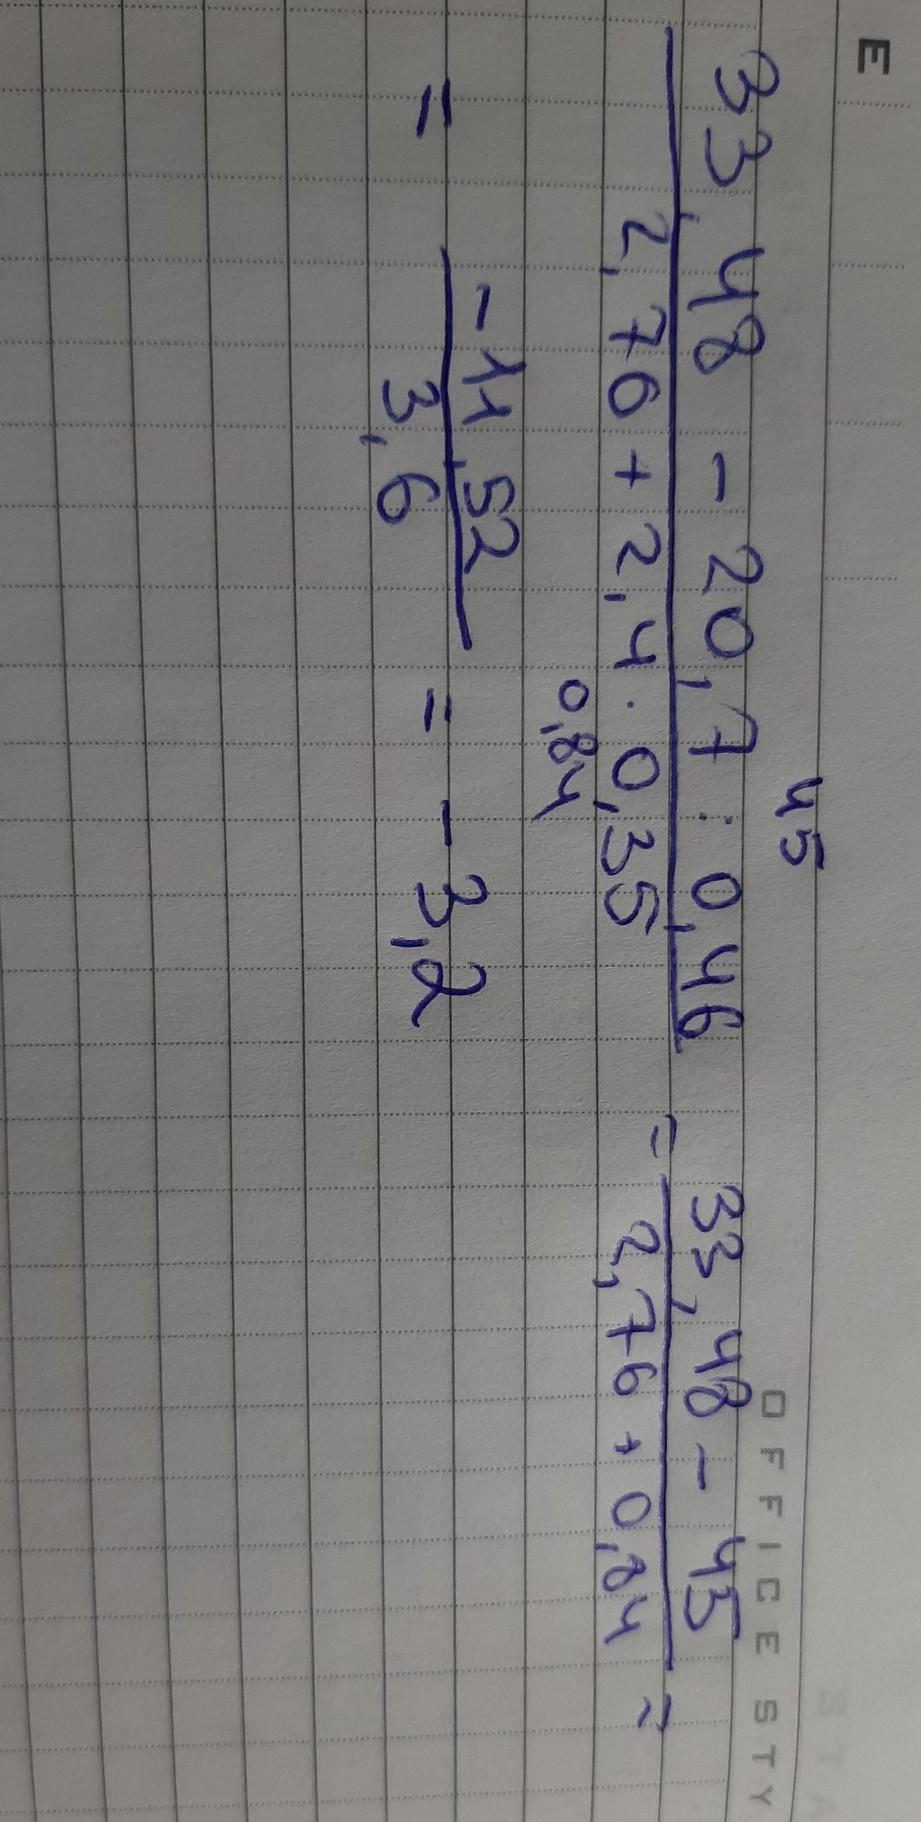 E OFFICE STY
45
33,48 - 20,7 : 0,46 = 33,48 - 45 =
2,76 + 2,4 · 0,35 2,76 + 0,84
0,84
= -11,52 = - 3,2
3,6